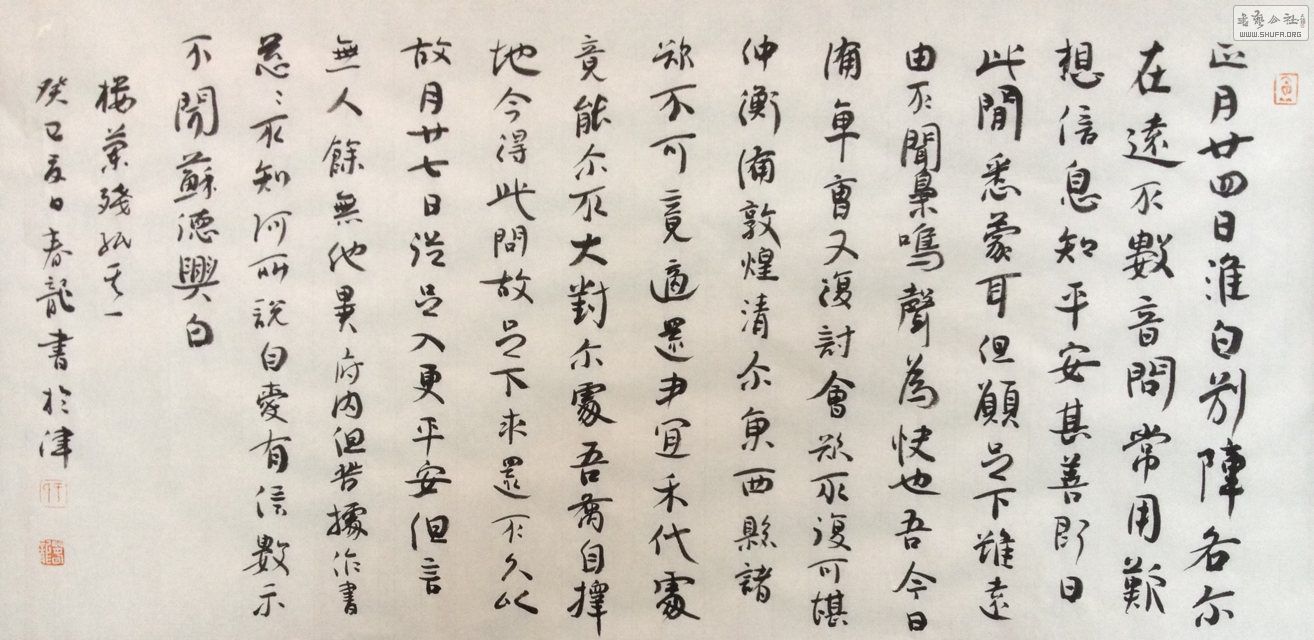 正月廿四日淮白別陣各尔
在遠不數音問常用歎
想信息知平安甚善即日
此間悉蒙耳但願足下雖遠
由不聞梟鳴聲為快也吾今日
備車曹又復討會欲不復可堪
仲衡備敦煌清尔東西縣諸
欲不可竟適還中宜禾代處
竟能尔不大對尔處吾商自擇
地今得此問故足下求還不久以
故月廿七日從足入更平安但言
無人餘無他異府內但苦據作書
忽〻不知何所說自愛有信數示
不聞蘇德興白
樓蘭殘紙其一
癸巳夏日春龍書於津
WWW.SHUFA.ORG